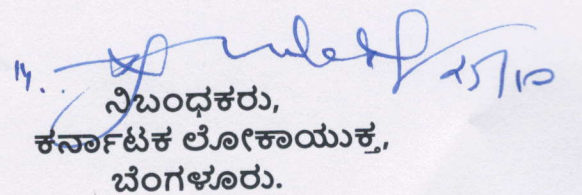 25/10
ನಿಬಂಧಕರು,
ಕರ್ನಾಟಕ ಲೋಕಾಯುಕ್ತ,
ಬೆಂಗಳೂರು.